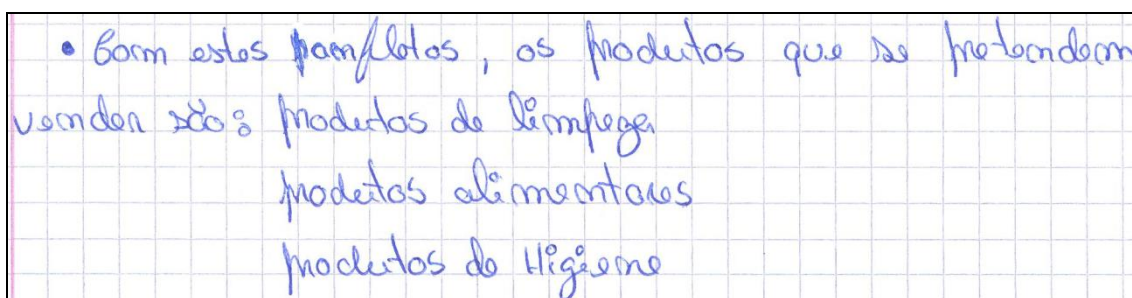 • Com estes panfletos, os produtos que se pretendem
vender são: produtos de limpeza
produtos alimentares
produtos de Higiene